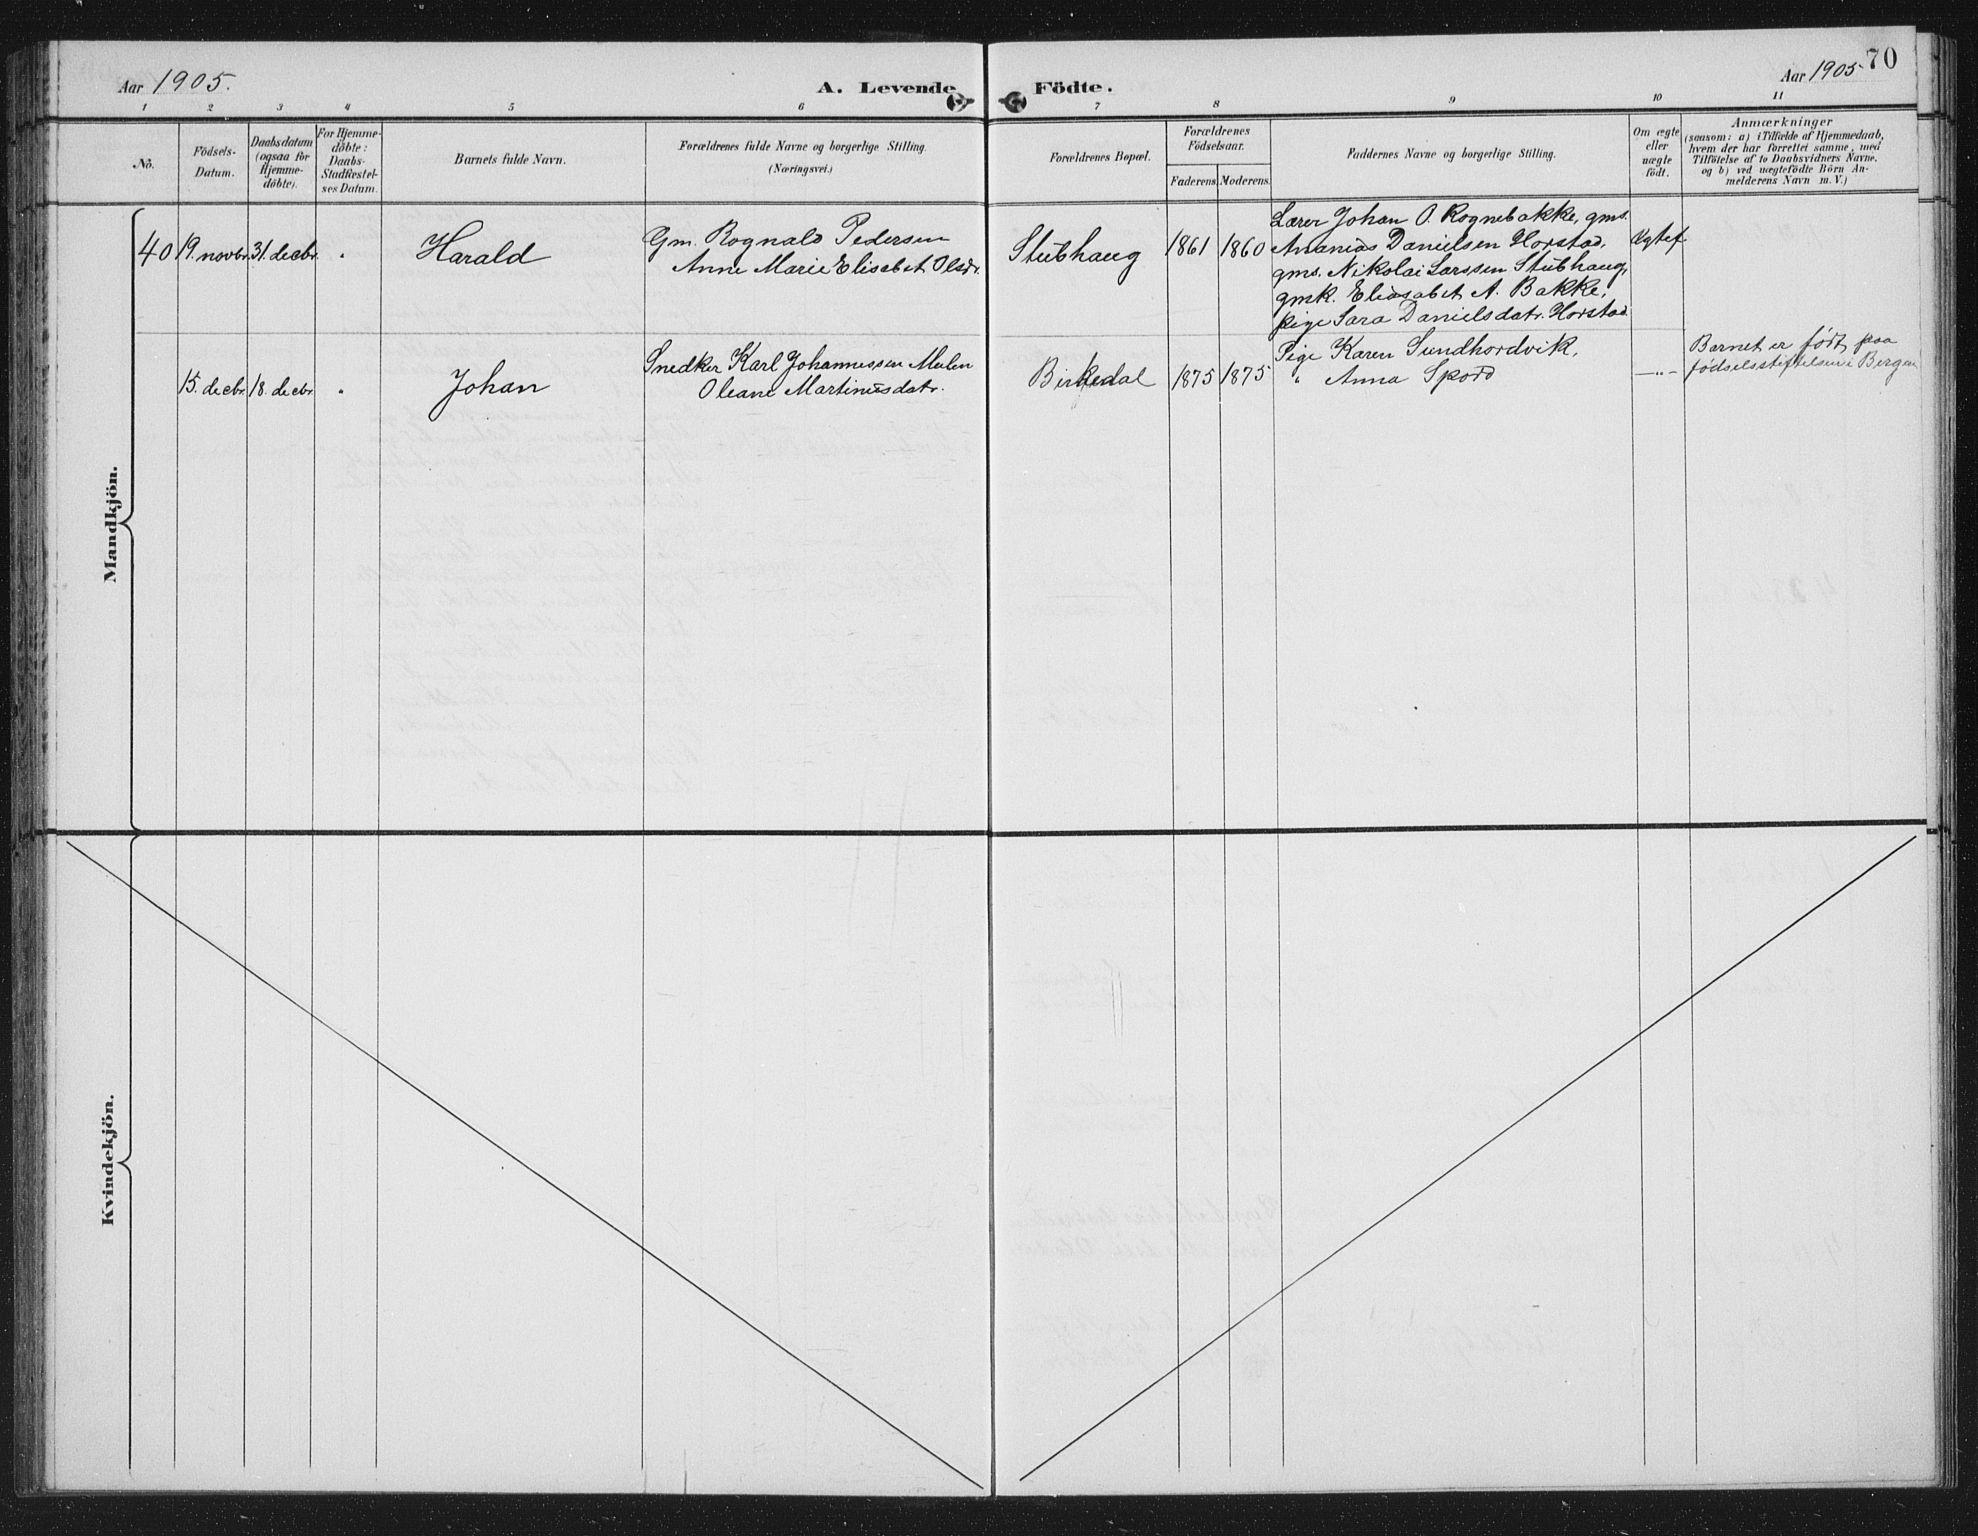 Aar 1905.
A. Levende
Födte.
Aar 1905.
70
1 2 3 4 5 6 7 8 9 10 11
No.
Födsels-
Datum.
Daabsdatum
(ogsaa for
Hjemme-
döbte).
For Hjemme-
döbte:
Daabs-
Stadfæstel-
ses Datum.
Barnets fulde Navn.
Forældrenes fulde Navne og borgerlige Stilling.
(Næringsvei.)
Forældrenes Bopæl.
Forældrenes
Födselsaar.
Faderens. Moderens.
Faddernes Navne og borgerlige Stilling.
Om ægte
eller
uægte
födt.
Anmærkninger
(saasom: a) i Tilfælde af Hjemmedaab,
hvem der har forrettet samme, med
Tilföielse af to Daabsvidners Navne,
og b) ved uægtefödte Börn An-
melderens Navn m. V.)
Mandkjön.
40 19. novbr. 31. decbr. " Harald
Gm. Rognald Pedersen
Anne Marie Elisabet Olsdr.
Stubhaug 1861 1860
Lærer Johan O. Rognebakke, gms.
Ananias Danielsen Horstad,
gms. Nikolai Larssen Stubhaug,
gmk. Eliasabet A. Bakke,
pige Sara Danielsdatr. Horstad
Ægtef.
15. decbr. 18. decbr. " Johan
Snedker Karl Johannessen Mulen
Oleane Martinusdatr.
Birkedal 1875 1875
Pige Karen Sundhordvik,
" Anna Spord
—"—
Barnet er født paa
fødselsstiftelsen i Bergen
Kvindekjön.